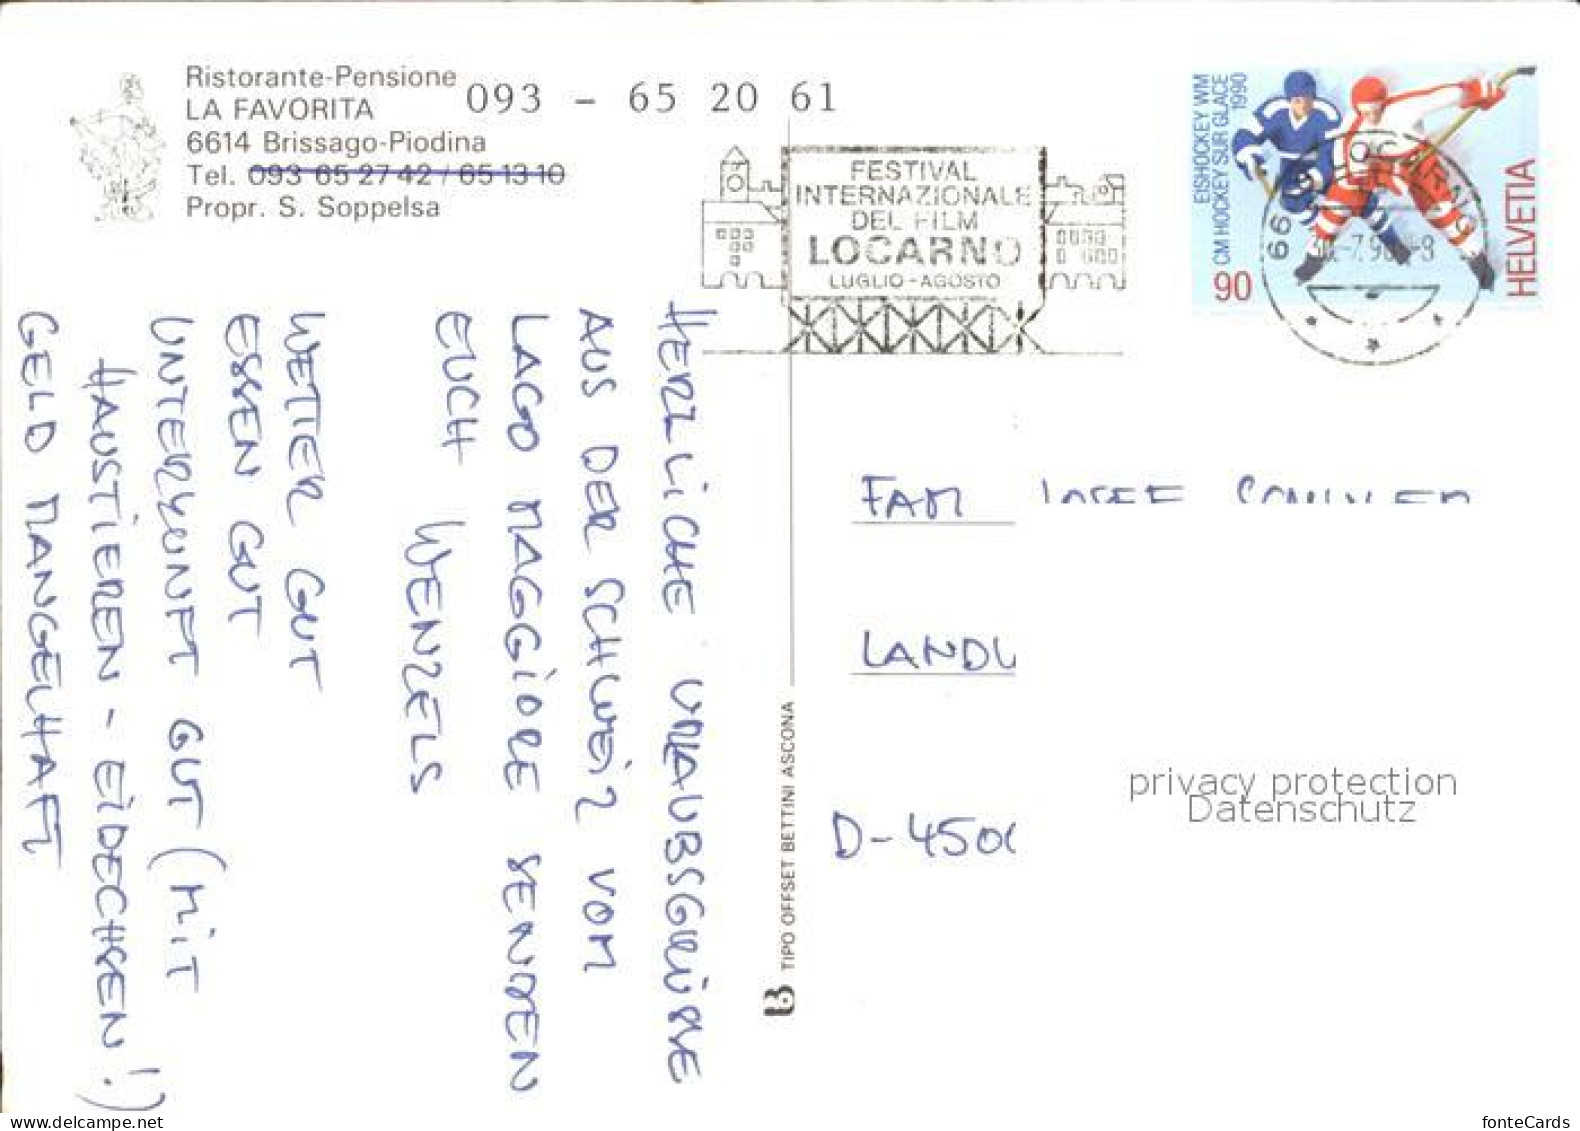 Ristorante-Pensione
LA FAVORITA
6614 Brissago-Piodina
Tel. 093 65 27 42 / 65 13 10
Propr. S. Soppelsa
093 - 65 20 61
FESTIVAL
INTERNAZIONALE
DEL FILM
LOCARNO
LUGLIO-AGOSTO
EISHOCKEY WM
CM HOCKEY SUR GLACE
1990
90
HELVETIA
LOCARNO
HERZLICHE URLAUBSGRÜSSE
AUS DER SCHWEIZ VOM
LAGO MAGGIORE SENDEN
EUCH WENZELS
WETTER GUT
ESSEN GUT
UNTERKUNFT GUT (MIT
HAUSTIEREN - EIDECHSEN!)
GELD MANGELHAFT
TIPO OFFSET BETTINI ASCONA
FAM
D-450
privacy protection
Datenschutz
www.delcampe.net
fonteCards